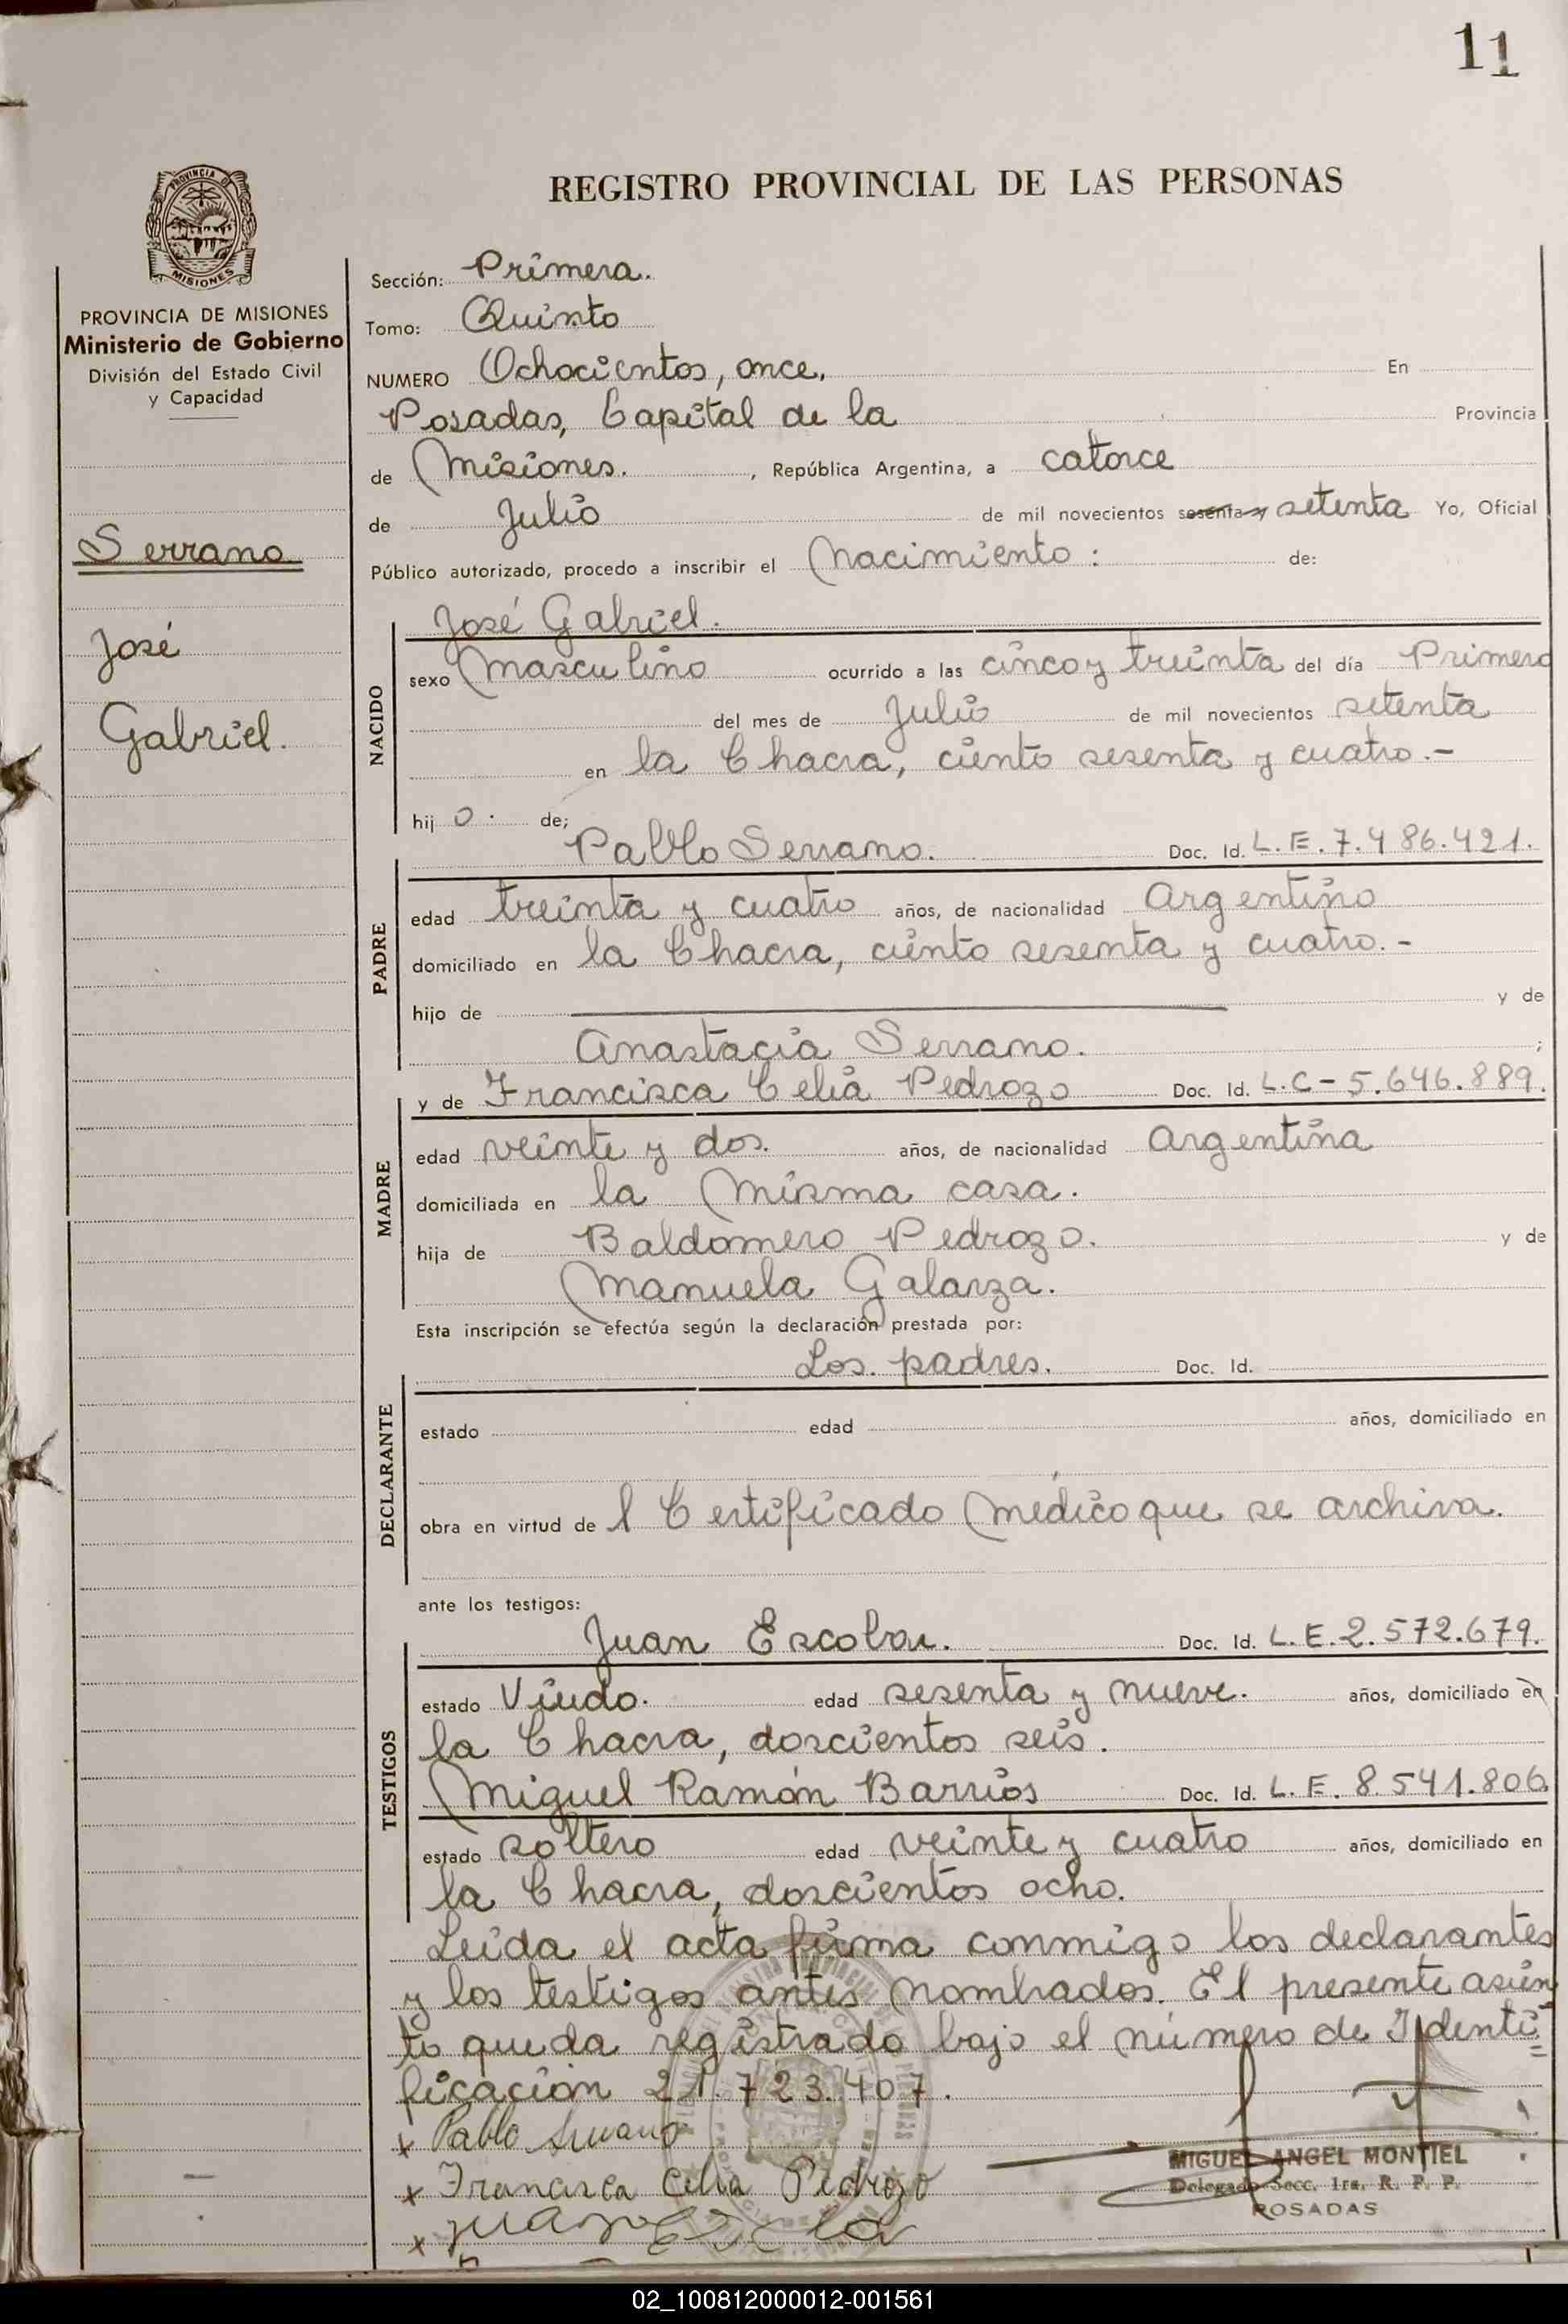 11
PROVINCIA DE
MISIONES
REGISTRO PROVINCIAL DE LAS PERSONAS
PROVINCIA DE MISIONES
Ministerio de Gobierno
División del Estado Civil
y Capacidad
Serrano
José
Gabriel.
Sección: Primera.
Tomo: Quinto
NUMERO Ochocientos, once, En
Posadas, Capital de la Provincia
de Misiones. , República Argentina, a catorce
de Julio de mil novecientos sesenta y setenta Yo, Oficial
Público autorizado, procedo a inscribir el Nacimiento: de:
José Gabriel.
NACIDO
sexo Masculino ocurrido a las cinco y treinta del día Primero
del mes de Julio de mil novecientos setenta
en la Chacra, ciento sesenta y cuatro.-
hij o. de;
Pablo Serrano. Doc. Id. L.E. 7.486.421.
PADRE
edad treinta y cuatro años, de nacionalidad Argentino
domiciliado en la Chacra, ciento sesenta y cuatro.-
hijo de y de
Anastacia Serrano. ;
y de Francisca Celia Pedrozo Doc. Id. L.C-5.646.889.
MADRE
edad veinte y dos. años, de nacionalidad Argentina
domiciliada en la Misma casa.
hija de Baldomero Pedrozo. y de
Manuela Galarza.
Esta inscripción se efectúa según la declaración prestada por:
Los padres. Doc. Id.
DECLARANTE
estado edad años, domiciliado en
obra en virtud de l Certificado Médico que se archiva.
ante los testigos:
Juan Escobar. Doc. Id. L.E. 2.572.679.
TESTIGOS
estado Viudo. edad sesenta y nueve. años, domiciliado en
la Chacra, doscientos seis.
Miguel Ramón Barrios Doc. Id. L.E. 8.541.806
estado soltero edad veinte y cuatro años, domiciliado en
la Chacra, doscientos ocho.
Leida el acta firma conmigo los declarantes
y los testigos antes Nombrados. El presente asien
to queda registrado bajo el número de Identi
ficación 21.723.407.
x Pablo Serrano
x Francisca Celia Pedrozo
x Juan
MIGUEL ANGEL MONTIEL
Delegado Secc. 1ra. R. P. P.
POSADAS
02_100812000012-001561